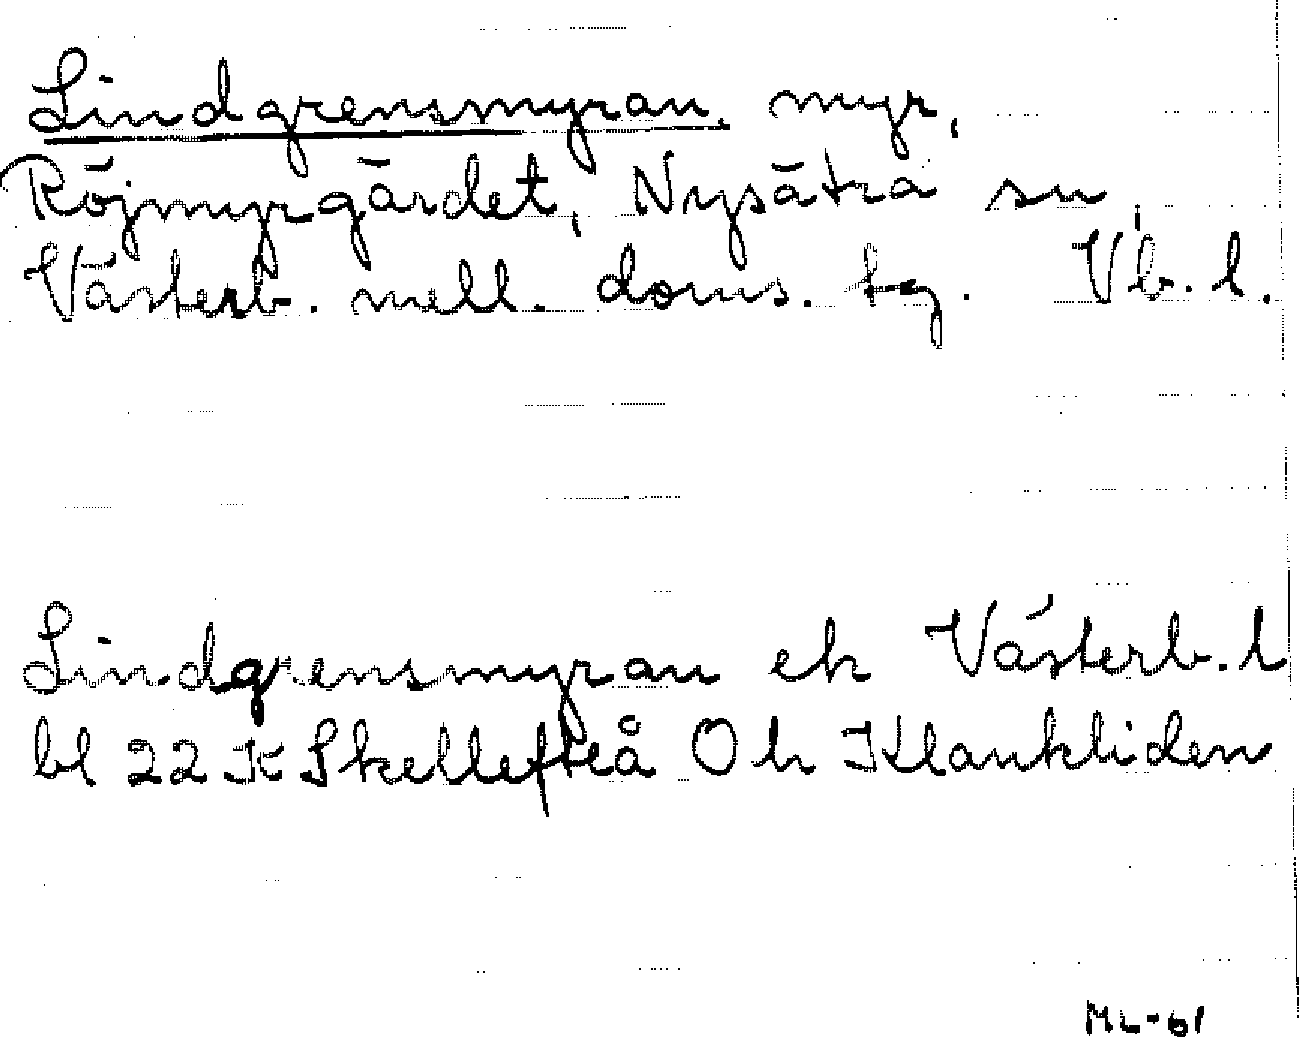 Lindgrensmyran. myr,
Röjmyrgärdet, Nysätra sn,
Västerb. mell. doms. tg. Vb. l.
Lindgrensmyran ek Västerb. l
bl 22 K Skellefteå O h Klankliden
ML-61